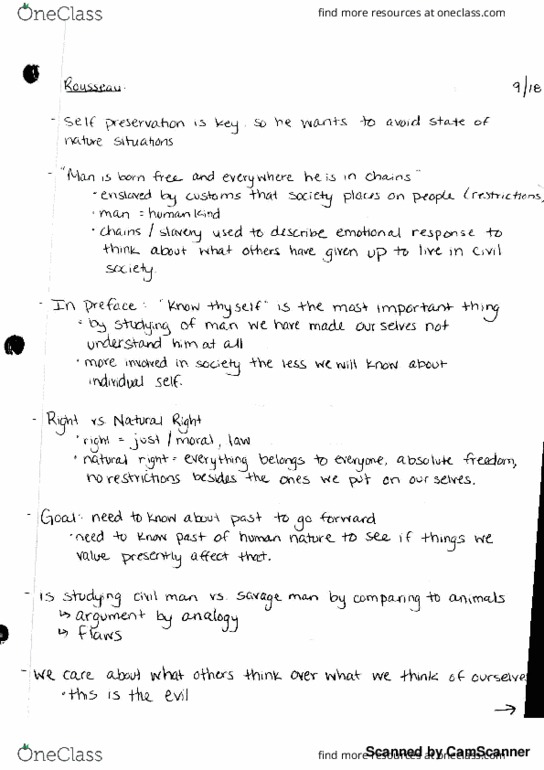 OneClass
find more resources at oneclass.com
Rousseau.
9/18
- Self preservation is key. so he wants to avoid state of
nature situations
- "Man is born free and everywhere he is in chains"
• enslaved by customs that society places on people (restrictions)
• man = humankind
• chains / slavery used to describe emotional response to
think about what others have given up to live in civil
society.
- In Preface: "Know thyself" is the most important thing
• by studying of man we have made ourselves not
understand him at all
• more involved in society the less we will know about
individual self.
- Right vs Natural Right
• right = just / moral, law
• natural right = everything belongs to everyone, absolute freedom,
no restrictions besides the ones we put on ourselves.
- Goal: need to know about past to go forward
• need to know past of human nature to see if things we
value presently affect that.
- is studying civil man vs. savage man by comparing to animals
↳ argument by analogy
↳ flaws
- we care about what others think over what we think of ourselves
• this is the evil
→
OneClass
find more resources at oneclass.com
Scanned by CamScanner